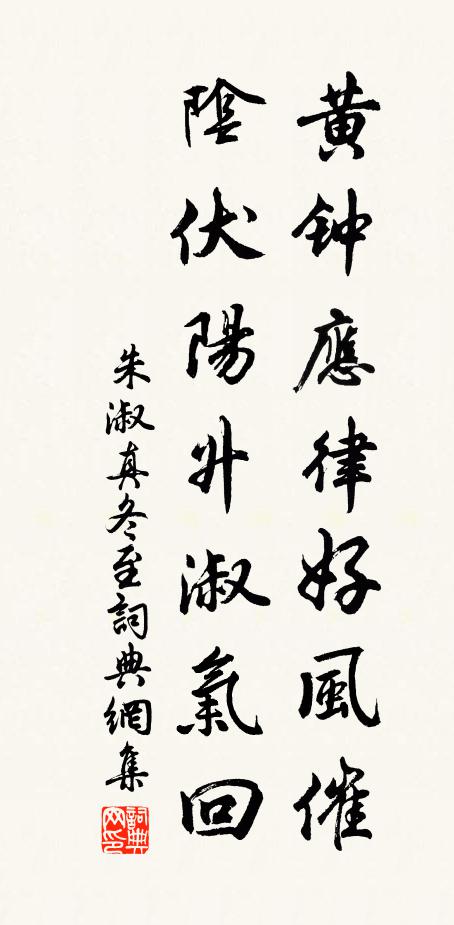 黄钟應律好風催
陰伏陽升淑氣回
朱淑真冬至詞典網集
詞典网印